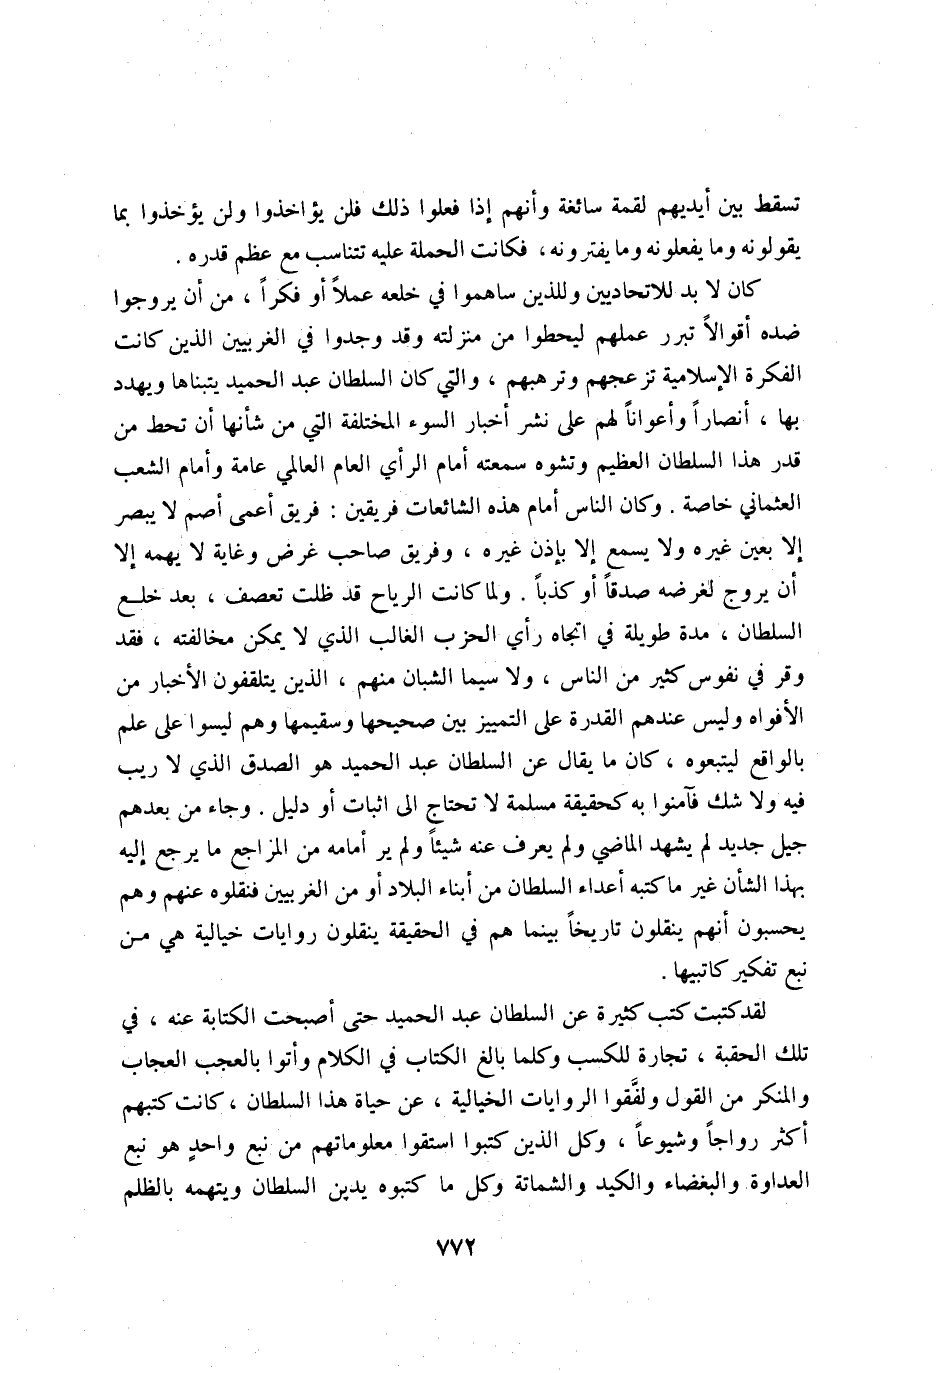 تسقط بين أيديهم لقمة سائغة وأنهم إذا فعلوا ذلك فلن يؤاخذوا ولن يؤخذوا بما
يقولونه وما يفعلونه وما يفترونه، فكانت الحملة عليه تتناسب مع عظم قدره .
كان لا بد للاتحاديين وللذين ساهموا في خلعه عملاً أو فكراً ، من أن يروجوا
ضده أقوالاً تبرر عملهم ليحطوا من منزلته وقد وجدوا في الغربيين الذين كانت
الفكرة الإسلامية تزعجهم وترهبهم ، والتي كان السلطان عبد الحميد يتبناها ويهدد
بها ، أنصاراً وأعواناً لهم على نشر أخبار السوء المختلفة التي من شأنها أن تحط من
قدر هذا السلطان العظيم وتشوه سمعته أمام الرأي العام العالمي عامة وأمام الشعب
العثماني خاصة . وكان الناس أمام هذه الشائعات فريقين : فريق أعمى أصم لا يبصر
إلا بعين غيره ولا يسمع إلا بإذن غيره ، وفريق صاحب غرض وغاية لا يهمه إلا
أن يروج لغرضه صدقاً أو كذباً . ولما كانت الرياح قد ظلت تعصف ، بعد خلـع
السلطان ، مدة طويلة في اتجاه رأي الحزب الغالب الذي لا يمكن مخالفته ، فقد
وقر في نفوس كثير من الناس ، ولا سيما الشبان منهم ، الذين يتلقفون الأخبار من
الأفواه وليس عندهم القدرة على التمييز بين صحيحها وسقيمها وهم ليسوا على علم
بالواقع ليتبعوه ، كان ما يقال عن السلطان عبد الحميد هو الصدق الذي لا ريب
فيه ولا شك فآمنوا به كحقيقة مسلمة لا تحتاج الى اثبات أو دليل . وجاء من بعدهم
جيل جديد لم يشهد الماضي ولم يعرف عنه شيئاً ولم ير أمامه من المراجع ما يرجع إليه
بهذا الشأن غير ما كتبه أعداء السلطان من أبناء البلاد أو من الغربيين فنقلوه عنهم وهم
يحسبون أنهم ينقلون تاريخاً بينما هم في الحقيقة ينقلون روايات خيالية هي مـن
نبع تفكير كاتبيها .
لقد كتبت كتب كثيرة عن السلطان عبد الحميد حتى أصبحت الكتابة عنه ، في
تلك الحقبة ، تجارة للكسب وكلما بالغ الكتاب في الكلام وأتوا بالعجب العجاب
والمنكر من القول ولفَّقوا الروايات الخيالية ، عن حياة هذا السلطان ، كانت كتبهم
أكثر رواجاً وشيوعاً ، وكل الذين كتبوا استقوا معلوماتهم من نبع واحدٍ هو نبع
العداوة والبغضاء والكيد والشماتة وكل ما كتبوه يدين السلطان ويتهمه بالظلم
٧٧٢